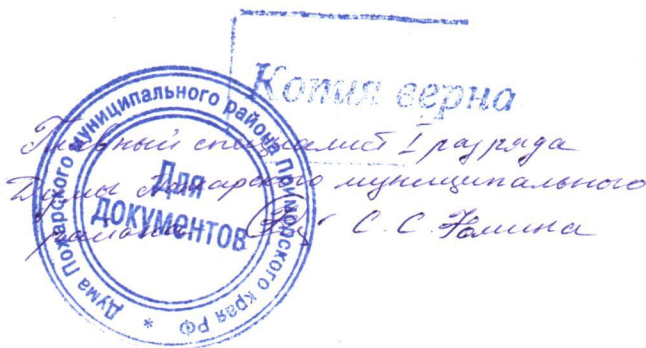 Копия верна
Главный специалист I разряда
Думы Пожарского муниципального
района С. С.
Дума Пожарского муниципального района Приморского края РФ *
Для
ДОКУМЕНТОВ